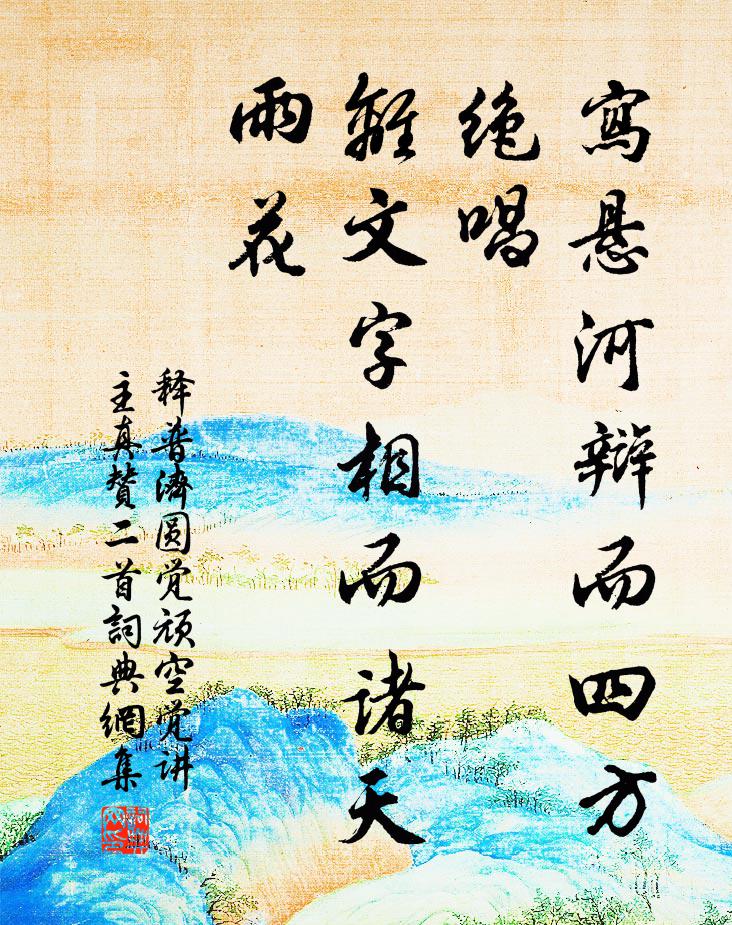 寫悬河辯而四方
绝唱
離文字相而诸天
雨花
释普濟圆觉顽空觉讲
主真赞二首詞典網集